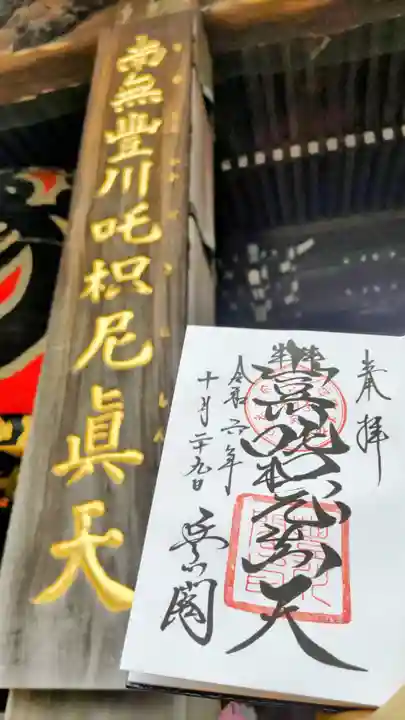 南無豊川吒枳尼眞天
奉拝
豊川吒枳尼真天
令和六年
十月二十九日